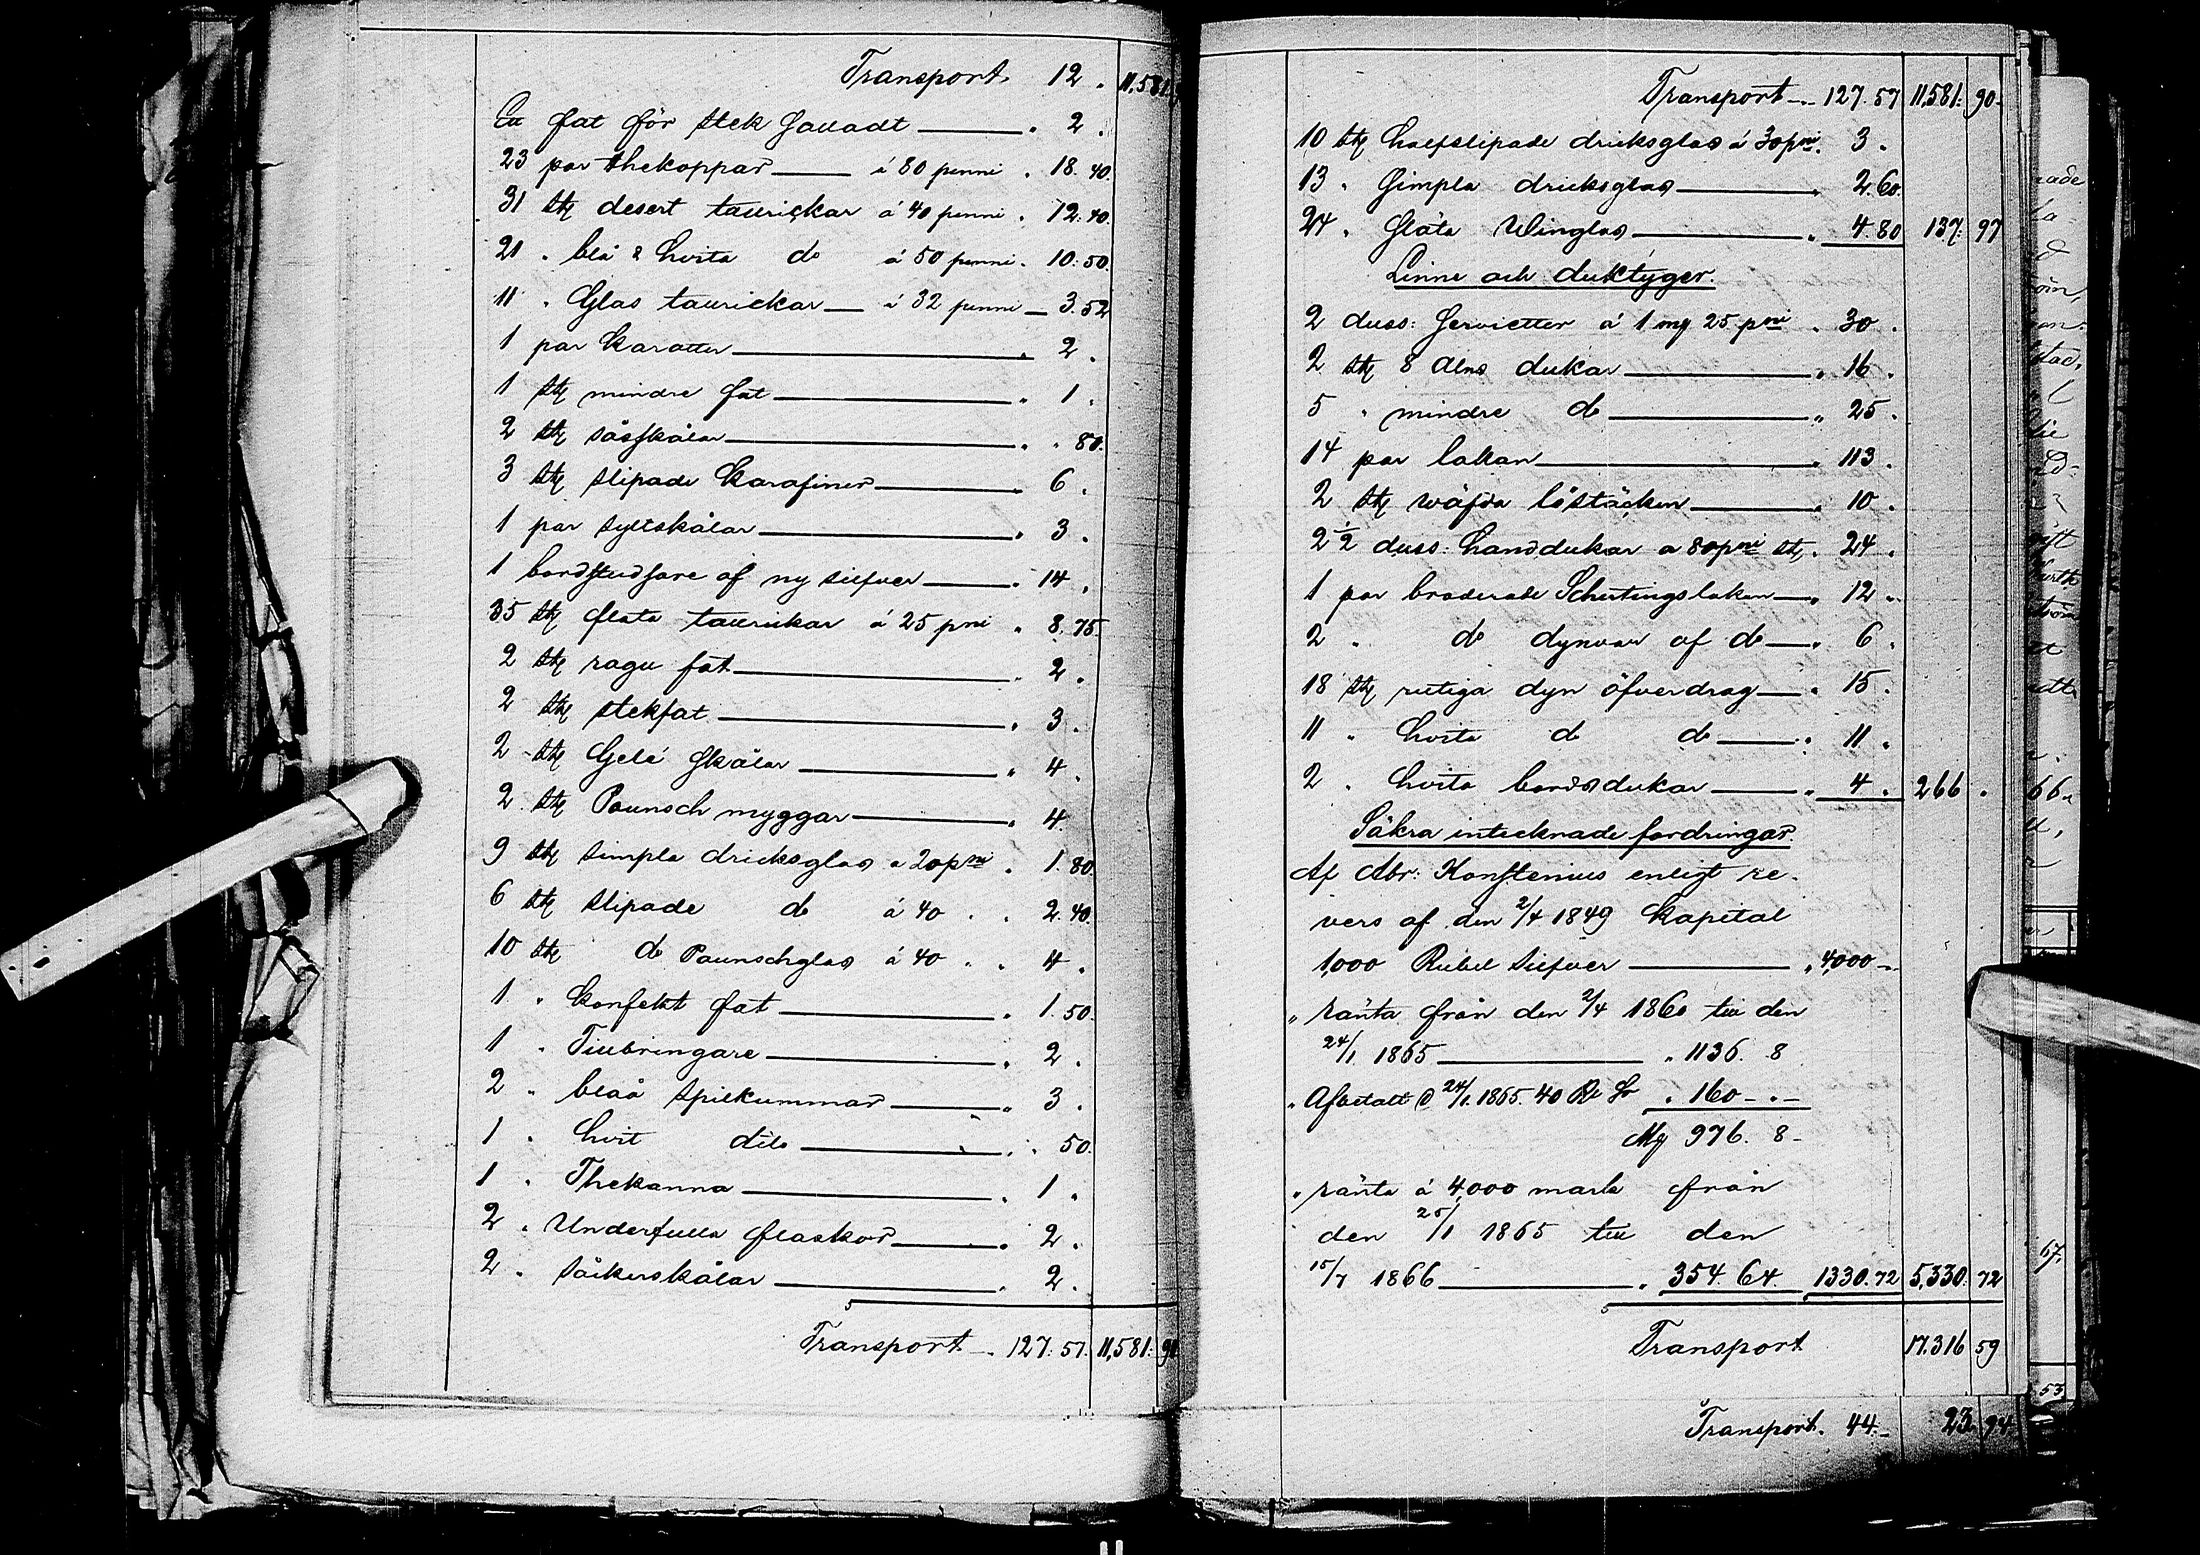 Transport. 12 . 11,581.
En fat för stek Gauadt . 2 .
23 par thekoppar á 80 penni . 18. 40.
31 stk desert taurickar á 40 penni . 12. 40.
21 . blå & hvita do á 50 penni . 10. 50.
11 . Glas taurickar á 32 penni 3. 52
1 par karotter . 2 .
1 stk mindre fat . 1 .
2 stk såsskålar . . 80.
3 stk slipade karafiner 6 .
1 par syltskålar . 3 .
1 bordstudsare af ny silfver . 14 .
35 stk flata taurickar á 25 pni . 8. 75.
2 stk ragu fat . 2 .
2 stk stekfat . 3 .
2 stk Gelé skålar . 4 .
2 stk Paunsch myggar . 4.
9 stk simpla dricksglas a 20 pni . 1. 80.
6 stk slipade do á 40 . . 2. 40.
10 stk do Paunschglas á 40 . . 4 .
1 . konfekt fat . 1. 50.
1 . Tilbringare . 2 .
2 . blåå spilkummar . 3 .
1 . hvit dito . . 50.
1 . Thekanna . 1 .
2 . Underfulla flaskor . 2 .
2 . såckerskålar . 2 .
Transport . 127. 57. 11,581. 90
Transport . 127. 57 11,581. 90.
10 stk halfslipade dricksglas á 30 pni. 3 .
13 . Simpla dricksglas . 2. 60.
24 . släta Winglas . 4. 80 137. 97
Linne och duktyger.
2 duss: Servietter á 1 mk 25 pni . 30 .
2 stk 8 Alns dukar . 16 .
5 . mindre do . 25 .
14 par lakan . 113 .
2 stk wäfda löstäcken . 10 .
2 1/2 duss: handdukar a 80 pni st. . 24 .
1 par broderade Schirtingslakan . 12 .
2 . do dynvar af do . 6 .
18 stk rutiga dyn öfverdrag . 15 .
11 . hvita do do . 11 .
2 . hvita bordsdukar . 4 . 266 .
Säkra intecknade fordringar.
Af Abr: Konstenius enligt re-
vers af den 2/4 1849 kapital
1,000 Rubel silfver . 4,000
. ränta från den 2/4 1860 till den
24/1 1865 . 1136. 8
. Afbetalt d 24/1 1865. 40 Rb Sr . 160
Mk 976. 8
. ränta á 4,000 mark från
den 25/1 1865 till den
15/7 1866 . 354. 64. 1330. 72 5,330. 72
Transport 17.316 59
Transport. 44. 23. 94